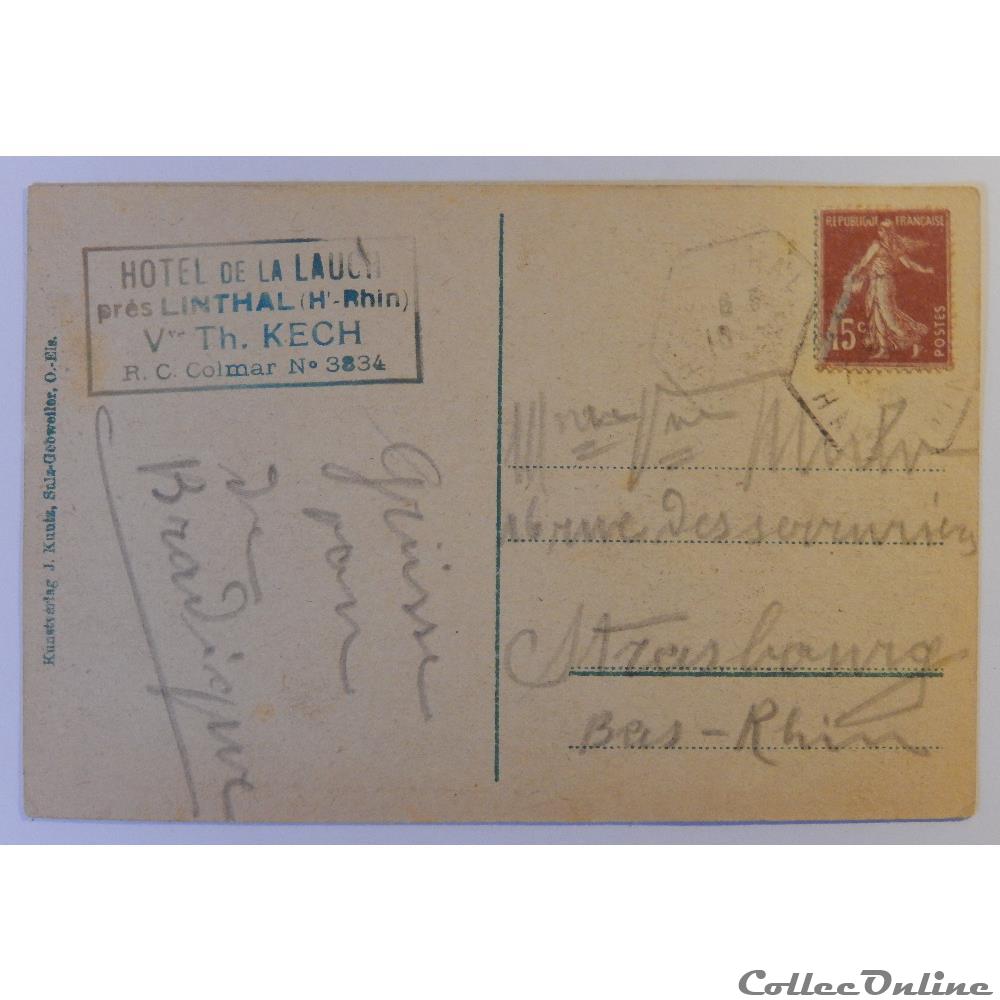 HOTEL DE LA LAUCH
près LINTHAL (Ht-Rhin)
Vve Th. KECH
R. C. Colmar No 3834
Kunstverlag J. Kuntz, Sulz-Gebweiler, O.-Els.
de
REPUBLIQUE FRANÇAISE
15 c
POSTES
Mme Vve
16 rue des serruriers
Strasbourg
Bas-Rhin
CollecOnline